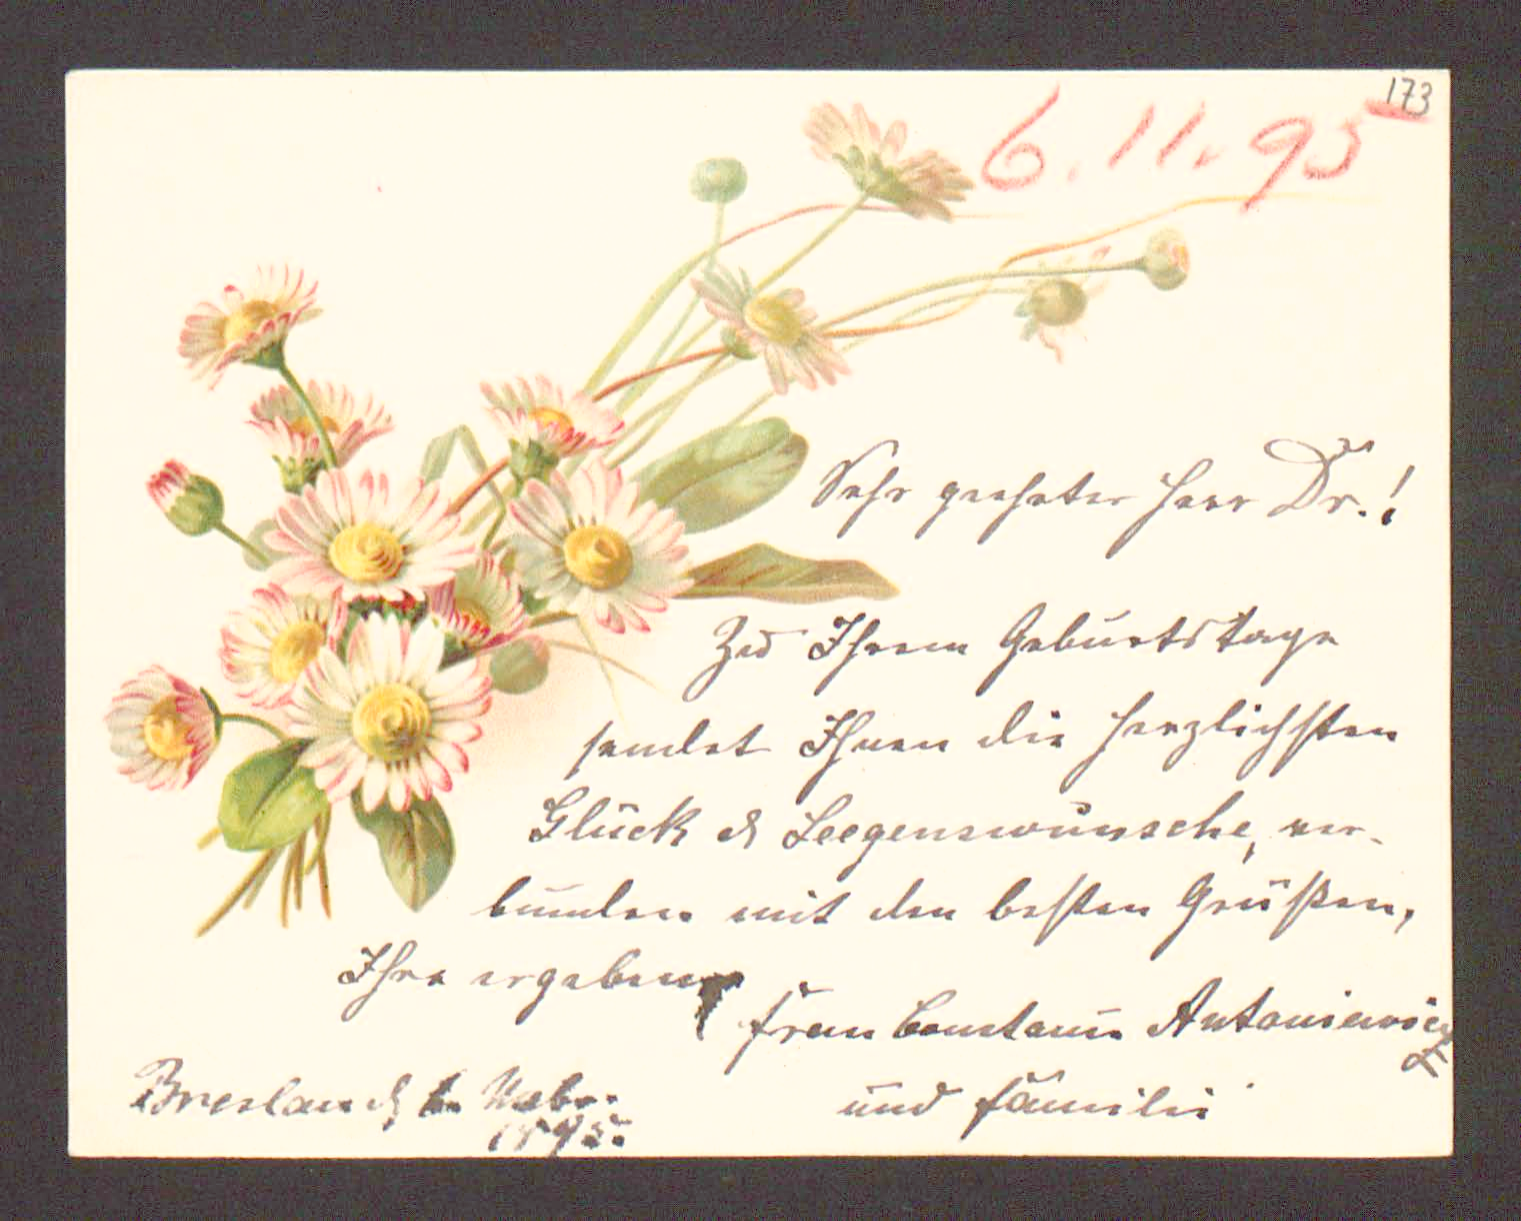 173
6.11.95
Sehr geehrter Herr Dr.!
Zu Ihrem Geburtstage
sendet Ihnen die herzlichsten
Glück & Seegenswünsche, ver-
bunden mit den besten Grüßen,
Ihre ergebene
Frau Constantin Antoniewicz
und Familie
Breslau d 6. Nvbr.
1895.